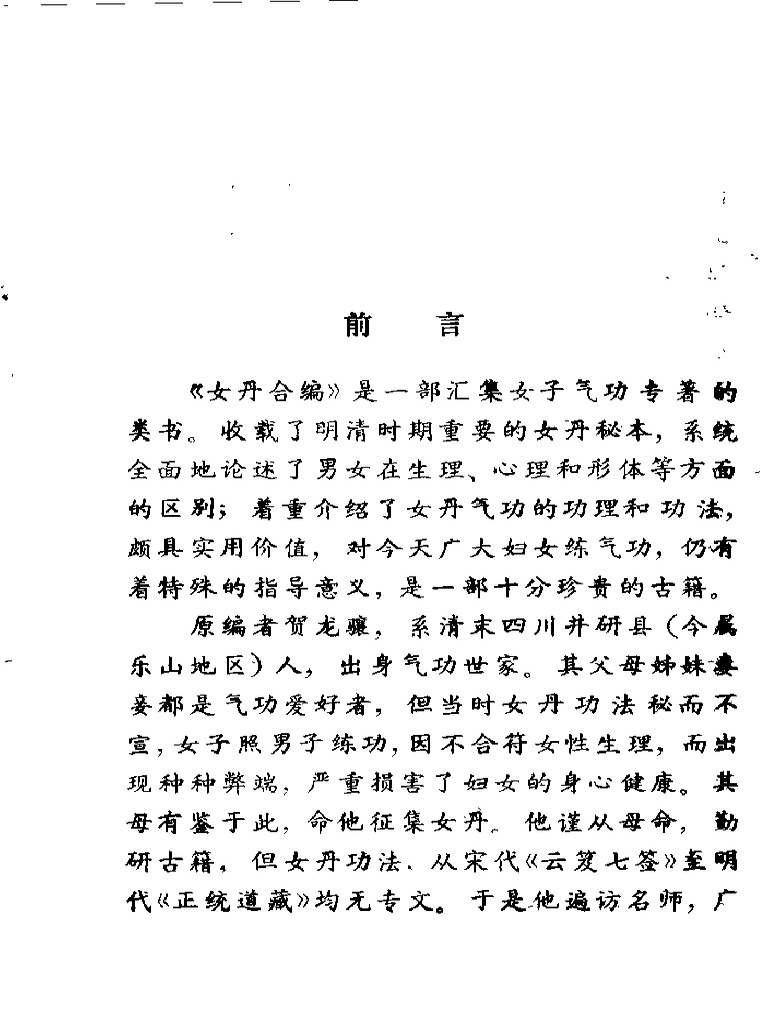 前 言
《女丹合编》是一部汇集女子气功专著的
类书。收载了明清时期重要的女丹秘本，系统
全面地论述了男女在生理、心理和形体等方面
的区别；着重介绍了女丹气功的功理和功法，
颇具实用价值，对今天广大妇女练气功，仍有
着特殊的指导意义，是一部十分珍贵的古籍。
原编者贺龙骧，系清末四川井研县（今属
乐山地区）人，出身气功世家。其父母姊妹妻
妾都是气功爱好者，但当时女丹功法秘而不
宣，女子照男子练功，因不合符女性生理，而出
现种种弊端，严重损害了妇女的身心健康。其
母有鉴于此，命他征集女丹。他谨从母命，勤
研古籍，但女丹功法、从宋代《云笈七签》至明
代《正统道藏》均无专文。于是他遍访名师，广